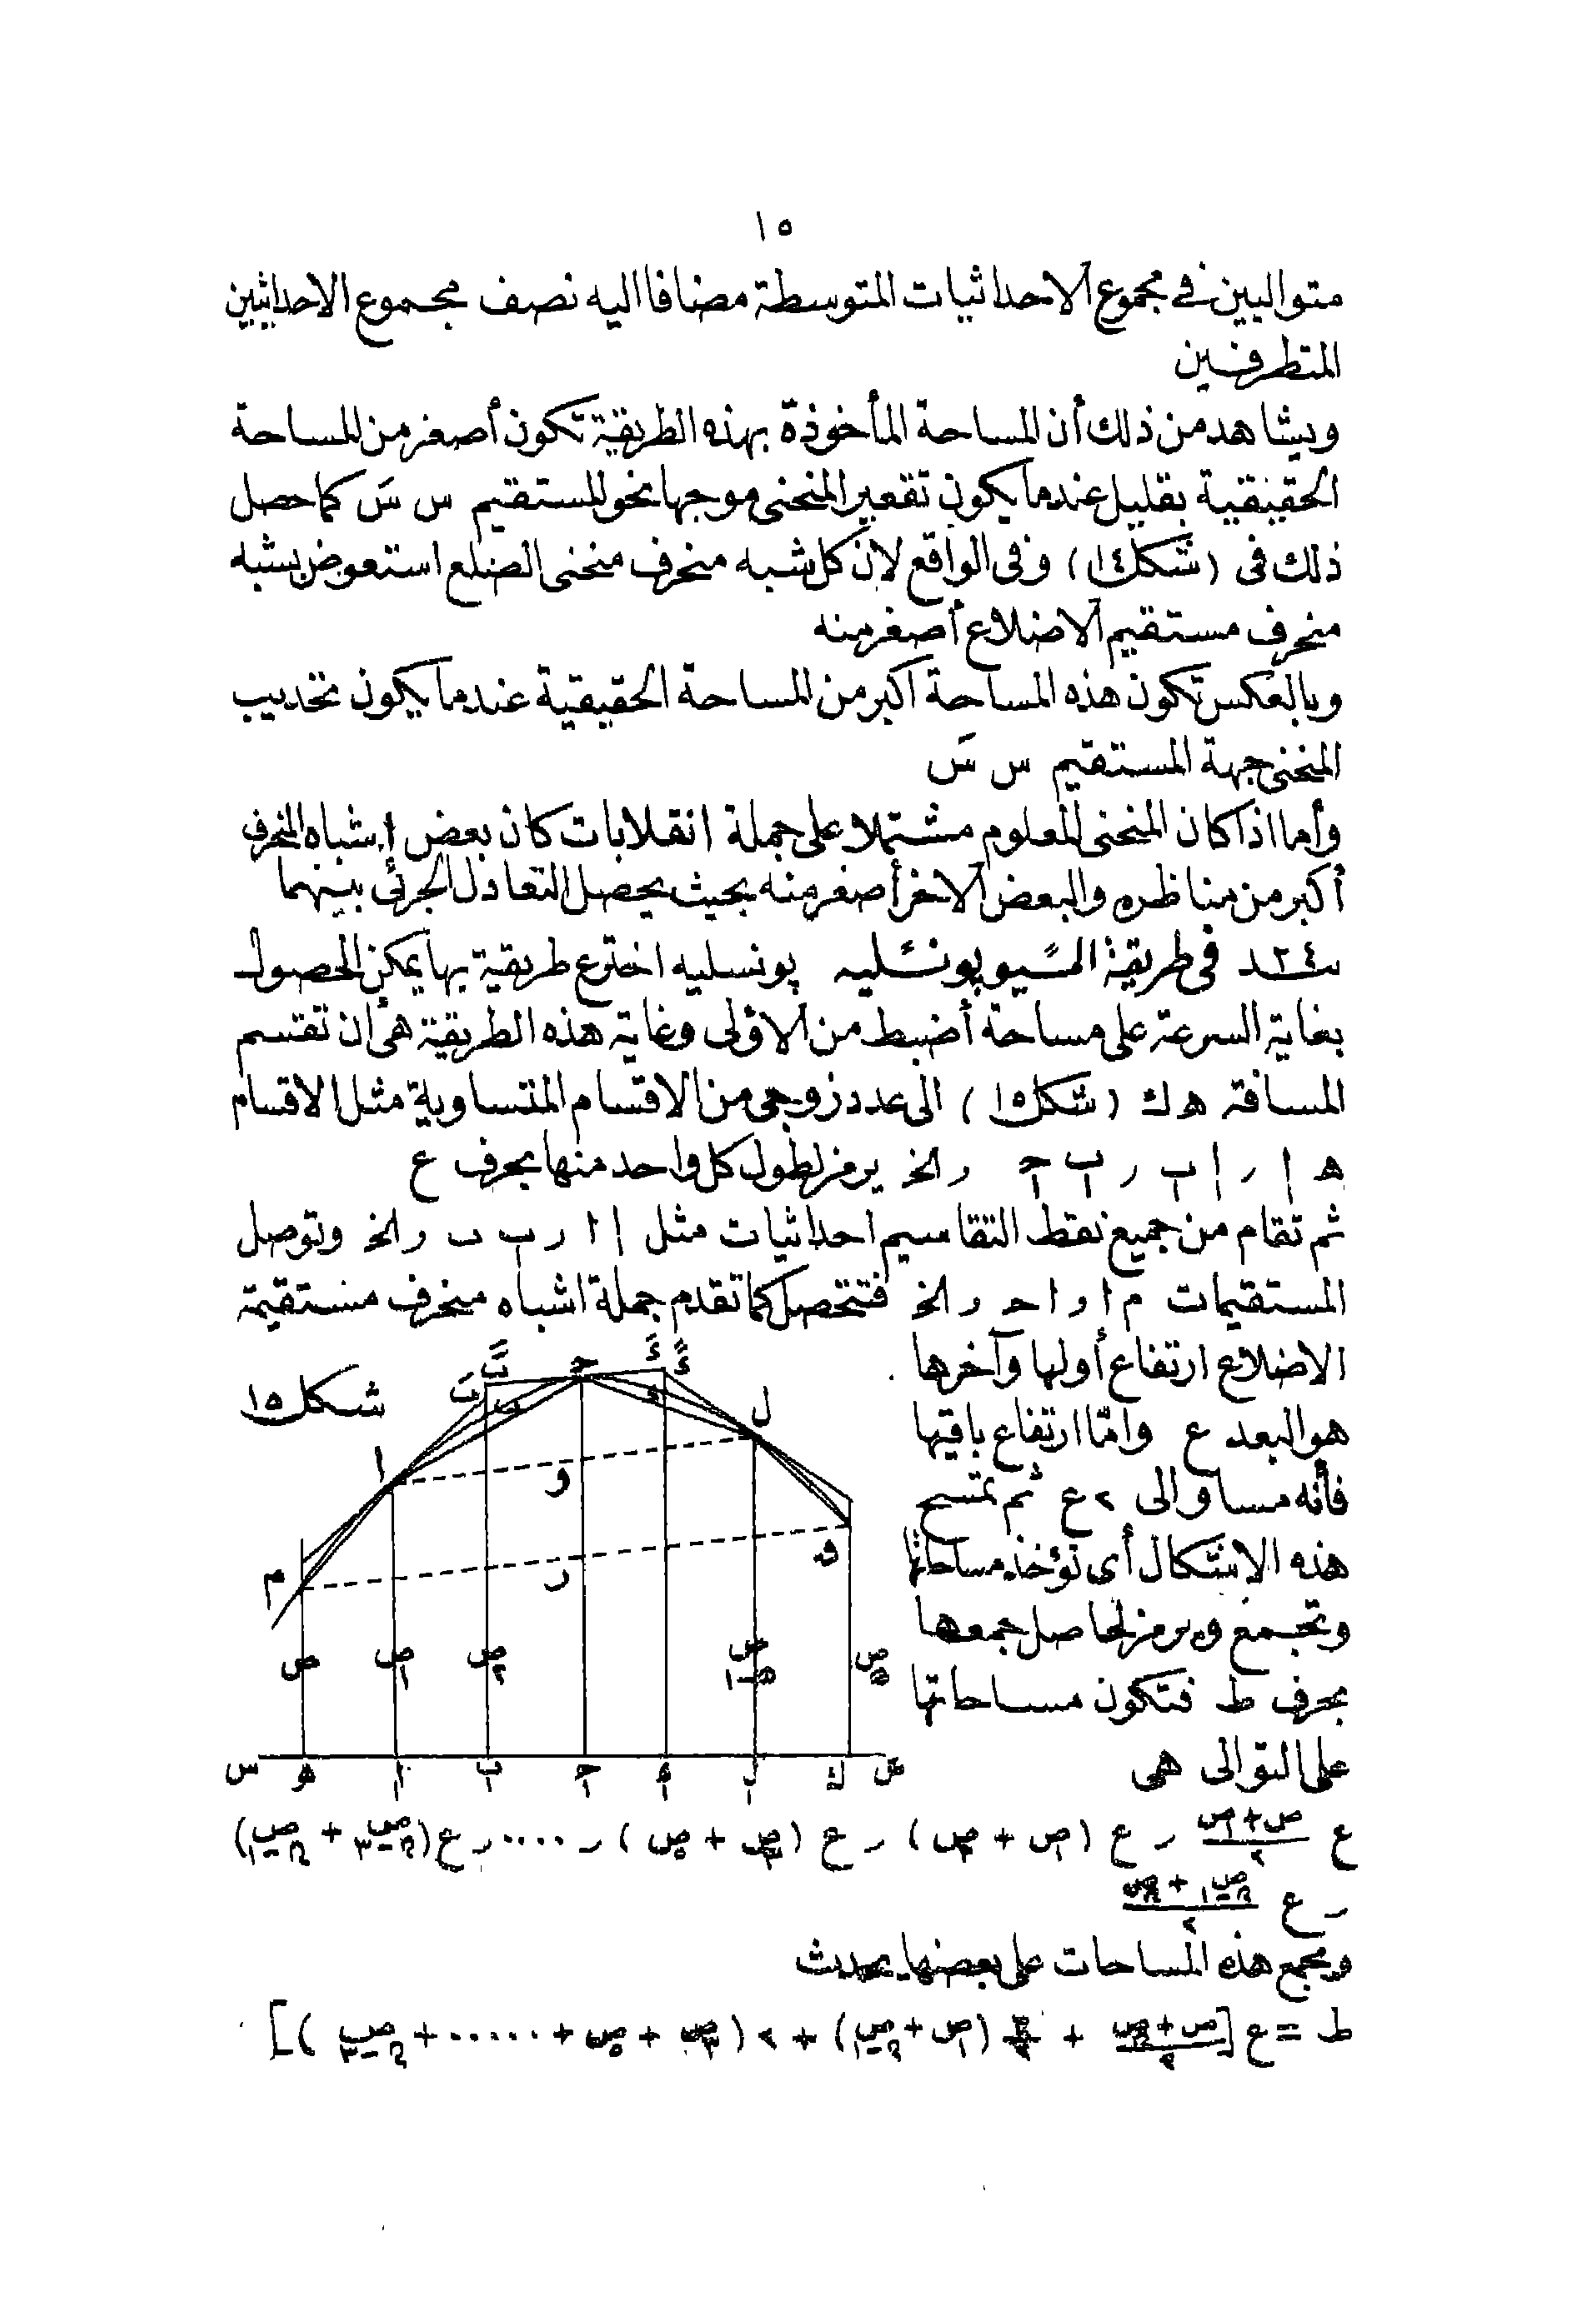 ١٥
متواليين في مجموع الاحداثيات المتوسطة مضافا اليه نصف مجموع الاحداثيين
المتطرفين
ويشاهد من ذلك أن المساحة المأخوذة بهذه الطريقة تكون أصغر من المساحة
الحقيقية بقليل عندما يكون تقعير المنحنى موجها نحو المستقيم س سَ كما حصل
ذلك فى (شكل ١٤) وفى الواقع لان كل شبه منحرف منحنى الضلع استعوض بشبه
منحرف مستقيم الاضلاع أصغر منه
وبالعكس تكون هذه المساحة أكبر من المساحة الحقيقية عندما يكون تحديب
المنحنى جهة المستقيم س سَ
وأما اذا كان المنحنى المعلوم مشتملا على جملة انقلابات كان بعض إشباه المنحرف
أكبر من مناظره والبعض الآخر أصغر منه بحيث يحصل التعادل الجزئى بينهما
٢٤ فى طريقة المسيو پونسليه پونسليه اخترع طريقة بها يمكن الحصول
بغاية السرعة على مساحة أضبط من الاولى وغاية هذه الطريقة هى أن تقسم
المسافة ه ك (شكل ١٥) الى عدد زوجى من الاقسام المتساوية مثل الاقسام
ه ا ر ا ب ر ب ح ر الخ يرمز لطول كل واحد منها بحرف ع
ثم تقام من جميع نقط التقاسيم احداثيات مثل ا ا ر ب ب ر الخ وتوصل
المستقيمات م ا ر ا ح ر الخ فتتحصل كما تقدم جملة اشباه منحرف مستقيمة
الاضلاع ارتفاع أولها وآخرها
هو البعد ع وامّا ارتفاع باقيها
فأنه مساو الى ٢ع ثم تمسح
هذه الاشكال أى تؤخذ مساحاتها
وتجمع ويرمز لحاصل جمعها
بحرف ط فتكون مساحاتها
على التوالى هى
شكل ١٥
بَ بً ح ءَ ءً
ل
ا
و
م
ر
ق
ص ص١ ص٢ ص ن-١ ص ن
س ه ا ب ح ء ل ك سَ
ع (ص + ص١)/٢ ر ع (ص١ + ص٣) ر ع (ص٣ + ص٥) ر .... ر ع (ص ن-٣ + ص ن-١)
ر ع (ص ن-١ + ص ن)/٢
وبجمع هذه المساحات على بعضها يحدث